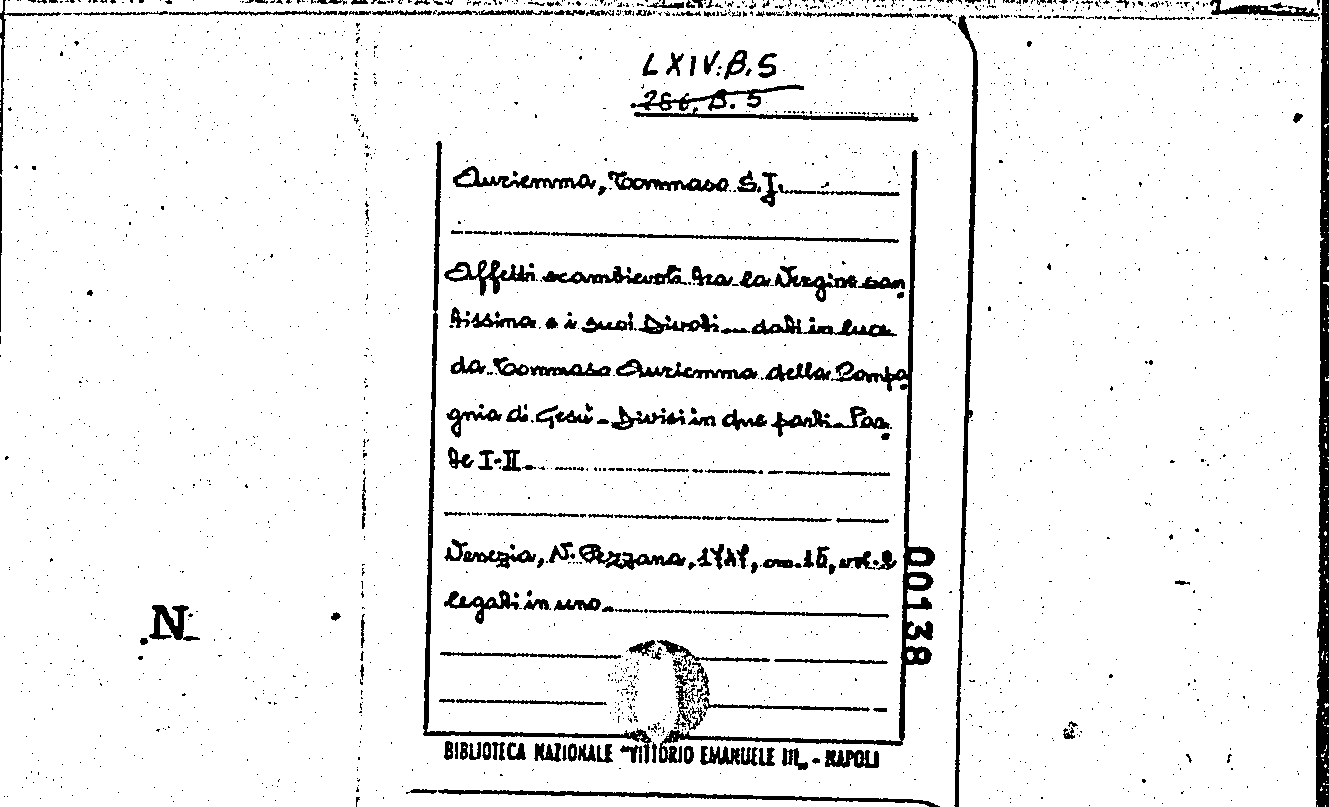 LXIV.B.5
286.B.5
Auriemma, Tommaso S.J.
Affetti scambievoli tra la Vergine san
tissima e i suoi Divoti... dati in luce
da Tommaso Auriemma della Compa
gnia di Gesù - Divisi in due parti - Par
te I-II.
Venezia, N. Pezzana, 1747, cm. 15, vol. 2
legati in uno.
00138
N
BIBLIOTECA NAZIONALE "VITTORIO EMANUELE III„ - NAPOLI